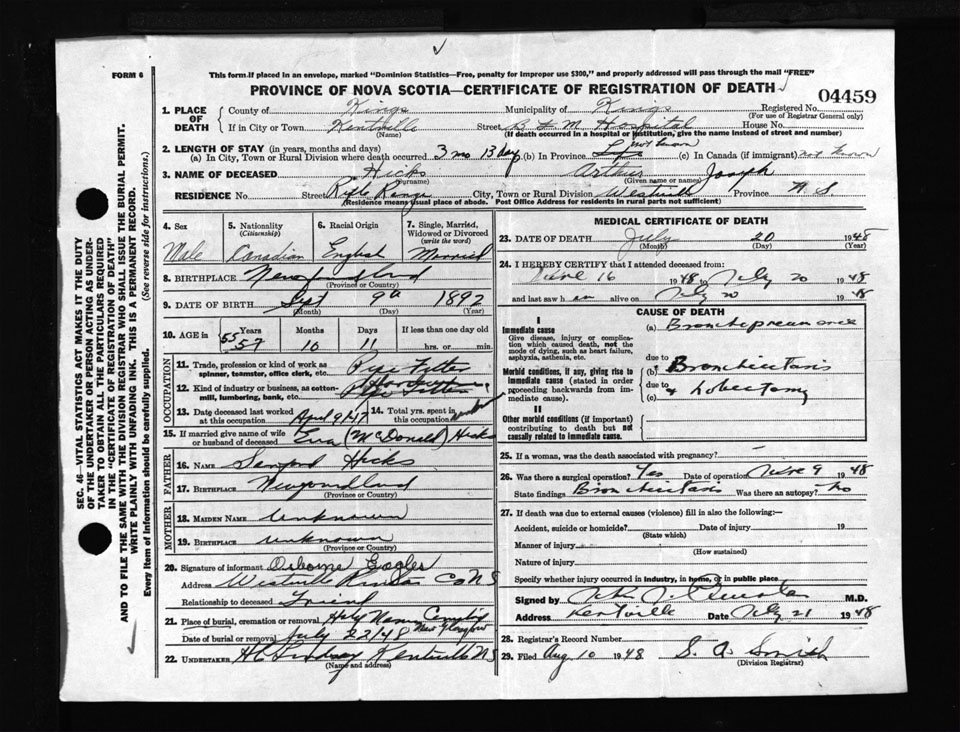 FORM 6
This form if placed in an envelope, marked "Dominion Statistics—Free, penalty for improper use $300," and properly addressed will pass through the mail "FREE"
PROVINCE OF NOVA SCOTIA—CERTIFICATE OF REGISTRATION OF DEATH
04459
1. PLACE OF DEATH
County of Kings Municipality of Kings Registered No.
(For use of Registrar General only)
If in City or Town Kentville Street B & M Hospital House No.
(Name) (If death occurred in a hospital or institution, give the name instead of street and number)
2. LENGTH OF STAY (in years, months and days)
(a) In City, Town or Rural Division where death occurred 3 mo 13 days (b) In Province not known (c) In Canada (if immigrant) not known
3. NAME OF DECEASED Hicks Arthur Joseph
(Surname) (Given name or names)
RESIDENCE No. Street Rifle Range City, Town or Rural Division Westville Province N S
(Residence means usual place of abode. Post Office Address for residents in rural parts not sufficient)
4. Sex Male
5. Nationality (Citizenship) Canadian
6. Racial Origin English
7. Single, Married, Widowed or Divorced (write the word) Married
8. BIRTHPLACE Newfoundland
(Province or Country)
9. DATE OF BIRTH Sept 9th 1892
(Month) (Day) (Year)
10. AGE in Years Months Days If less than one day old
55 57 10 11 hrs. or min.
OCCUPATION
11. Trade, profession or kind of work as spinner, teamster, office clerk, etc. Pipe Fitter
12. Kind of industry or business, as cotton-mill, lumbering, bank, etc. Pipe Fitter
13. Date deceased last worked at this occupation April 9/47
14. Total yrs. spent in this occupation
15. If married give name of wife or husband of deceased Eva (McDonald) Hicks
FATHER
16. NAME Sanford Hicks
17. BIRTHPLACE Newfoundland
(Province or Country)
MOTHER
18. MAIDEN NAME Unknown
19. BIRTHPLACE Unknown
(Province or Country)
20. Signature of informant Osborne Eagles
Address Westville Co N S
Relationship to deceased Friend
21. Place of burial, cremation or removal Holy Name New Glasgow
Date of burial or removal July 22/48
22. UNDERTAKER H C Lindsay Kentville NS
(Name and address)
MEDICAL CERTIFICATE OF DEATH
23. DATE OF DEATH July 20 1948
(Month) (Day) (Year)
24. I HEREBY CERTIFY that I attended deceased from:
June 16 1948 to July 20 1948
and last saw him alive on July 20 1948
CAUSE OF DEATH
I
Immediate cause
Give disease, injury or complication which caused death, not the mode of dying, such as heart failure, asphyxia, asthenia, etc.
(a) Bronchopneumonia
due to
Morbid conditions, if any, giving rise to immediate cause (stated in order proceeding backwards from immediate cause).
(b) Bronchiectasis
due to
(c) & Lobectomy
II
Other morbid conditions (if important) contributing to death but not causally related to immediate cause.
25. If a woman, was the death associated with pregnancy?
26. Was there a surgical operation? Yes Date of operation June 9 1948
State findings Bronchiectasis Was there an autopsy? No
27. If death was due to external causes (violence) fill in also the following:—
Accident, suicide or homicide? Date of injury 19
(State which)
Manner of injury
(How sustained)
Nature of injury
Specify whether injury occurred in industry, in home, or in public place
Signed by M.D.
Address Kentville Date July 21 1948
28. Registrar's Record Number
29. Filed Aug 10 1948 S. A. Smith
(Division Registrar)
SEC. 46—VITAL STATISTICS ACT MAKES IT THE DUTY
OF THE UNDERTAKER OR PERSON ACTING AS UNDER-
TAKER TO OBTAIN ALL THE PARTICULARS REQUIRED
IN THE "CERTIFICATE OF REGISTRATION OF DEATH"
AND TO FILE THE SAME WITH THE DIVISION REGISTRAR WHO SHALL ISSUE THE BURIAL PERMIT.
WRITE PLAINLY WITH UNFADING INK. THIS IS A PERMANENT RECORD.
Every item of Information should be carefully supplied. (See reverse side for instructions.)